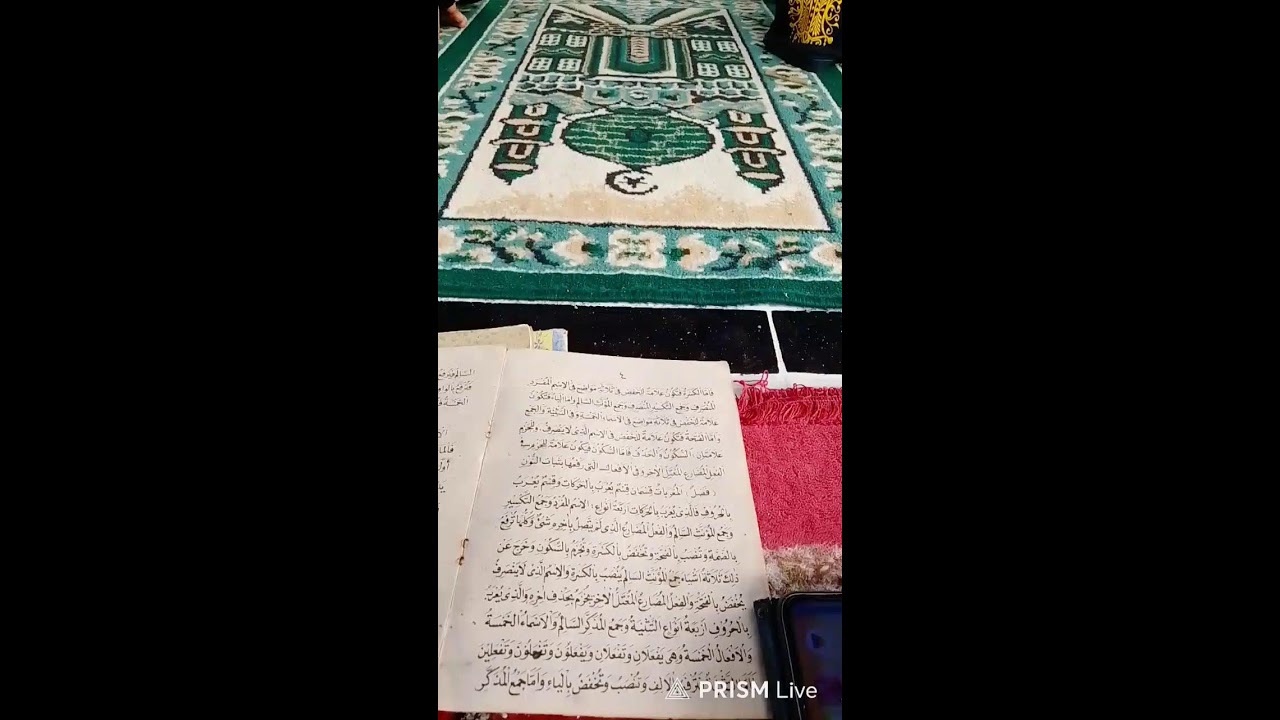 ٤
فَأَمَّا الْكَسْرَةُ فَتَكُوْنُ عَلَامَةً لِلْخَفْضِ فِى ثَلَاثَةِ مَوَاضِعَ فِى الْاِسْمِ الْمُفْرَدِ
الْمُنْصَرِفِ وَجَمْعِ التَّكْسِيْرِ الْمُنْصَرِفِ وَجَمْعِ الْمُؤَنَّثِ السَّالِمِ وَأَمَّا الْيَاءُ فَتَكُوْنُ
عَلَامَةً لِلْخَفْضِ فِى ثَلَاثَةِ مَوَاضِعَ فِى الْاَسْمَاءِ الْخَمْسَةِ وَفِى التَّثْنِيَةِ وَالْجَمْعِ
وَأَمَّا الْفَتْحَةُ فَتَكُوْنُ عَلَامَةً لِلْخَفْضِ فِى الْاِسْمِ الَّذِى لَا يَنْصَرِفُ. وَلِلْجَزْمِ
عَلَامَتَانِ السُّكُوْنُ وَالْحَذْفُ فَأَمَّا السُّكُوْنُ فَيَكُوْنُ عَلَامَةً لِلْجَزْمِ فِى
الْفِعْلِ الْمُضَارِعِ الْمُعْتَلِّ الْاٰخِرِ وَفِى الْاَفْعَالِ الَّتِى رَفْعُهَا بِثَبَاتِ النُّوْنِ
( فصل ) الْمُعْرَبَاتُ قِسْمَانِ قِسْمٌ يُعْرَبُ بِالْحَرَكَاتِ وَقِسْمٌ يُعْرَبُ
بِالْحُرُوْفِ فَالَّذِى يُعْرَبُ بِالْحَرَكَاتِ اَرْبَعَةُ اَنْوَاعٍ: الْاِسْمُ الْمُفْرَدُ وَجَمْعُ التَّكْسِيْرِ
وَجَمْعُ الْمُؤَنَّثِ السَّالِمُ وَالْفِعْلُ الْمُضَارِعُ الَّذِى لَمْ يَتَّصِلْ بِاٰخِرِهِ شَىْءٌ وَكُلُّهَا تُرْفَعُ
بِالضَّمَّةِ وَتُنْصَبُ بِالْفَتْحَةِ وَتُخْفَضُ بِالْكَسْرَةِ وَتُجْزَمُ بِالسُّكُوْنِ وَخَرَجَ عَنْ
ذٰلِكَ ثَلَاثَةُ اَشْيَاءَ جَمْعُ الْمُؤَنَّثِ السَّالِمُ يُنْصَبُ بِالْكَسْرَةِ وَالْاِسْمُ الَّذِى لَا يَنْصَرِفُ
يُخْفَضُ بِالْفَتْحَةِ وَالْفِعْلُ الْمُضَارِعُ الْمُعْتَلُّ الْاٰخِرِ يُجْزَمُ بِحَذْفِ اٰخِرِهِ وَالَّذِى يُعْرَبُ
بِالْحُرُوْفِ اَرْبَعَةُ اَنْوَاعٍ التَّثْنِيَةُ وَجَمْعُ الْمُذَكَّرِ السَّالِمُ وَالْاَسْمَاءُ الْخَمْسَةُ
وَالْاَفْعَالُ الْخَمْسَةُ وَهِىَ يَفْعَلَانِ وَتَفْعَلَانِ وَيَفْعَلُوْنَ وَتَفْعَلُوْنَ وَتَفْعَلِيْنَ
بِالْاَلِفِ وَتُنْصَبُ وَتُخْفَضُ بِالْيَاءِ وَاَمَّا جَمْعُ الْمُذَكَّرِ
PRISM Live